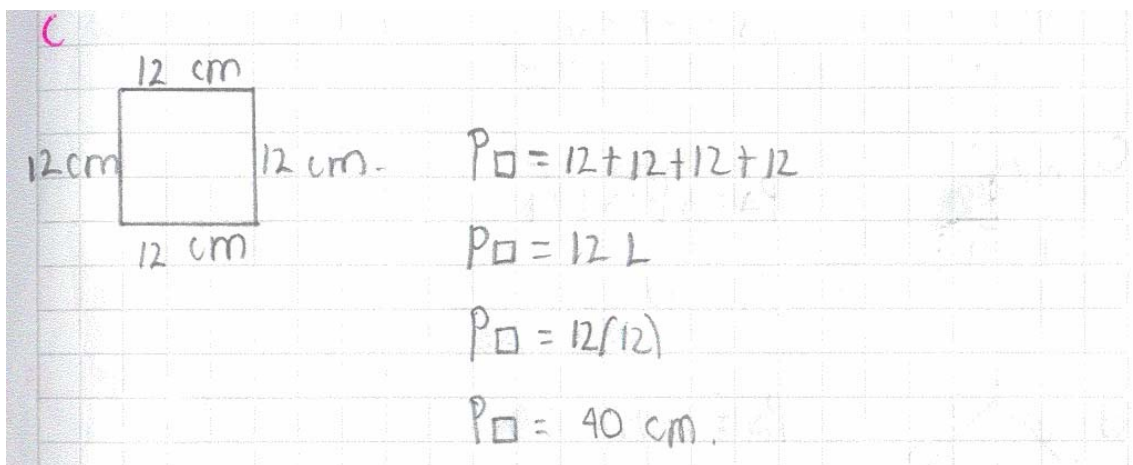 C
12 cm
12 cm
12 cm.
P□ = 12+12+12+12
12 cm
P□ = 12 L
P□ = 12(12)
P□ = 40 cm.